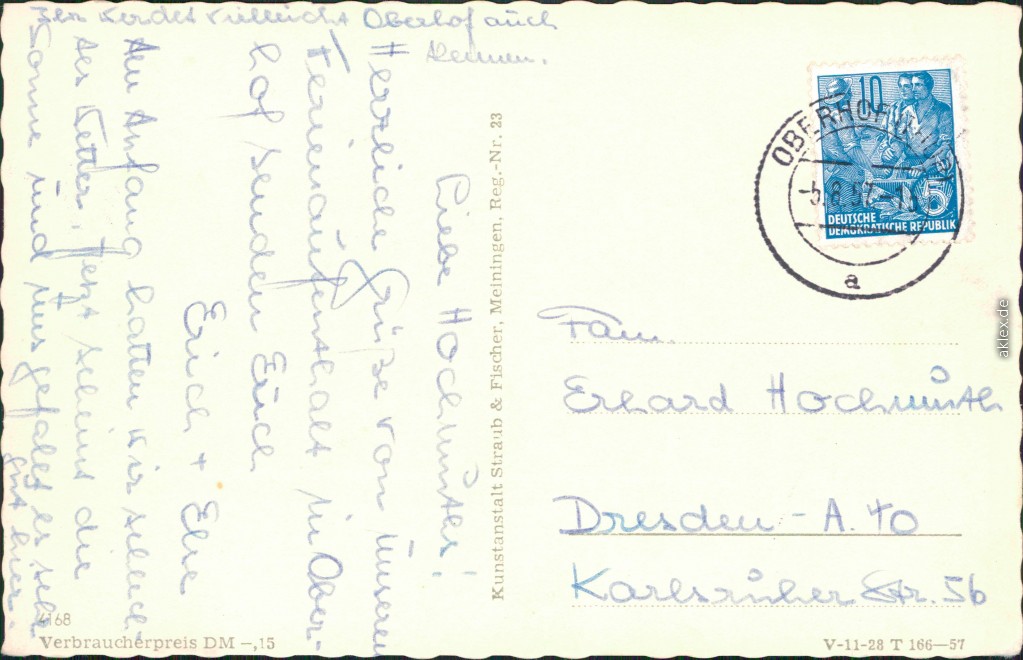 Liebe Hochmuths!
Herrliche Grüße von unserem
Ferienaufenthalt in Ober-
hof senden Euch
Erich + Else
Am Anfang hatten wir schlech-
tes Wetter. Jetzt scheint die
Sonne und uns gefällt es sehr
gut hier.
Ihr werdet vielleicht Oberhof auch
kennen.
Kunstanstalt Straub & Fischer, Meiningen, Reg.-Nr. 23
10
5
DEUTSCHE
DEMOKRATISCHE REPUBLIK
OBERHOF
-5.8.57.-
a
Fam.
Erhard Hochmuth
Dresden - A. 40
Karlsruher Str. 56
4168
Verbraucherpreis DM -,15
V-11-28 T 166—57
aklex.de